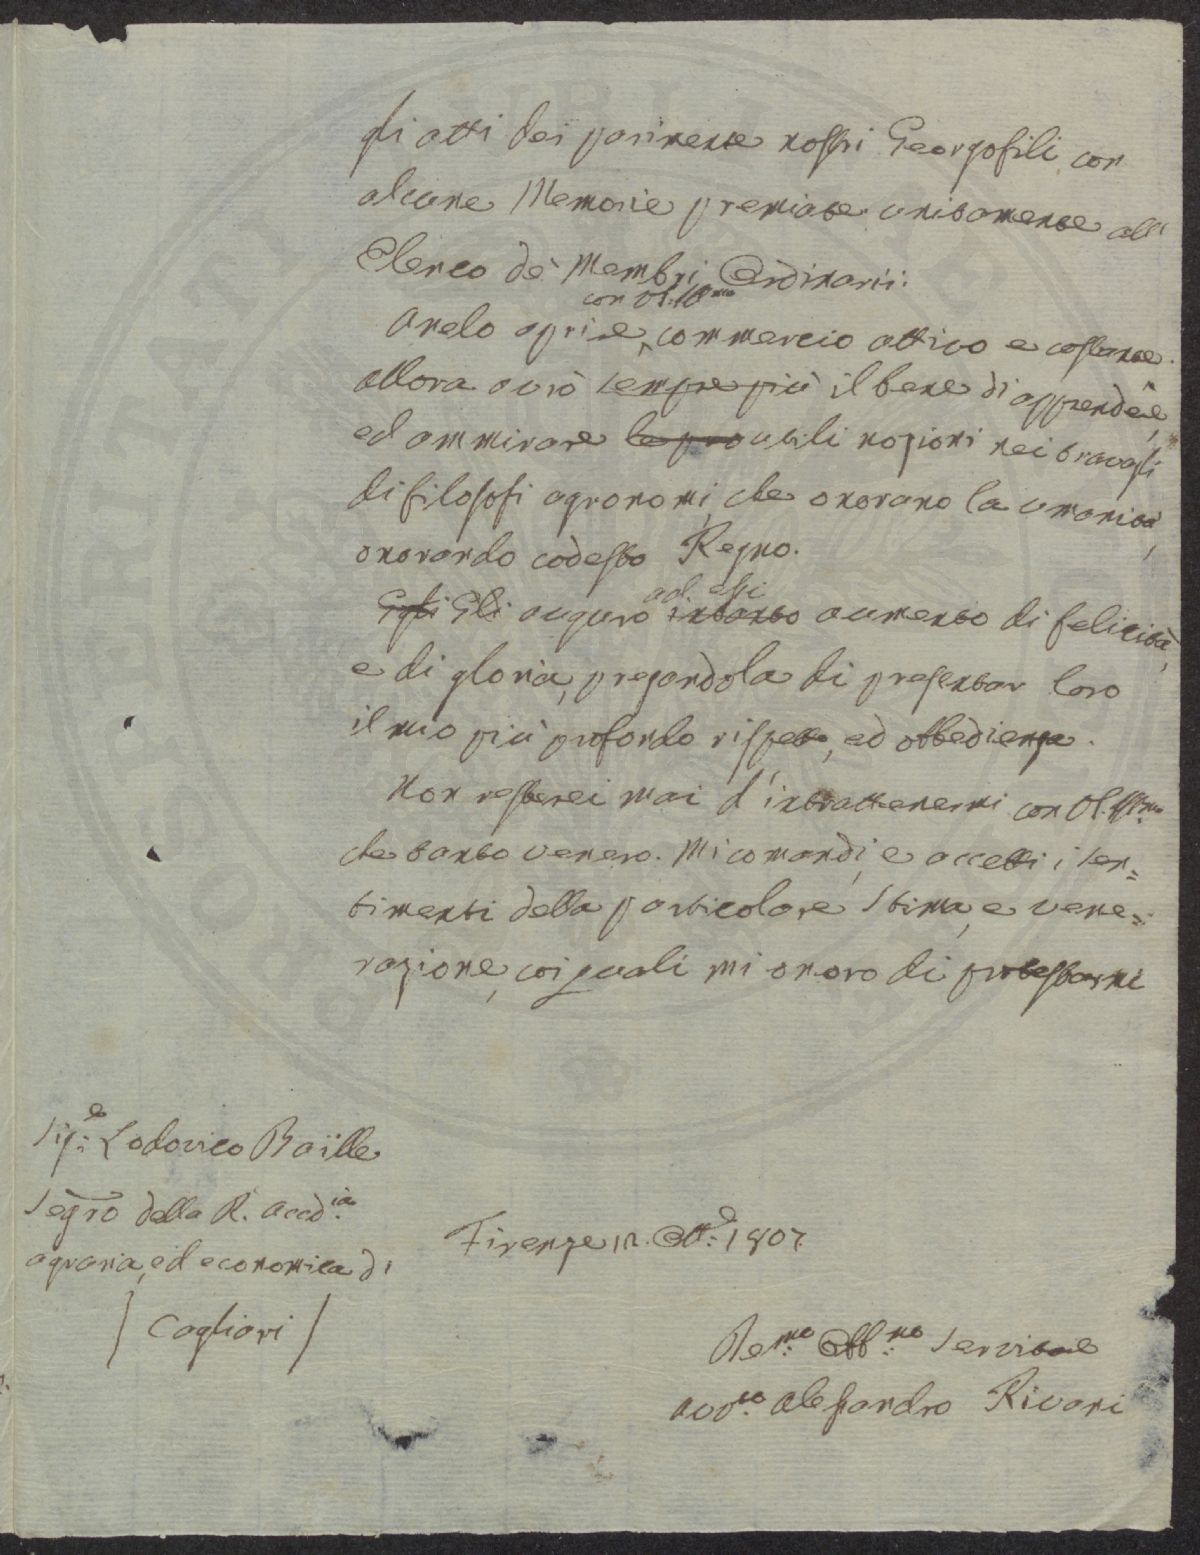 gli atti dei parimente nostri Georgofili con
alcune Memorie premiate unitamente all'
Elenco de' Membri Ordinarii.
con VS. Ill.ma
Anelo aprire commercio attivo e costante.
allora avrò sempre più il bene di apprendere,
ed ammirare le pro utili nozioni nei travagli
di filosofi agronomi, che onorano la umanità,
onorando codesto Regno.
ad essi
Egli Gli auguro intanto aumento di felicità,
e di gloria, pregandola di presentar loro
il mio più profondo rispetto, ed obbedienza.
Non resterei mai d'intrattenermi con VS. Ill.ma
che tanto venero. Mi comandi, e accetti i sen=
timenti della particolare stima, e vene=
razione, coi quali mi onoro di protestarmi
Sig.e Lodovico Baïlle
Segro della R. Accd.ia
agraria, ed economica di
/ Cagliari /
Firenze 12. Ott.e 1807.
De.mo Obb.mo Servitore
Avv.to Alessandro Rivani